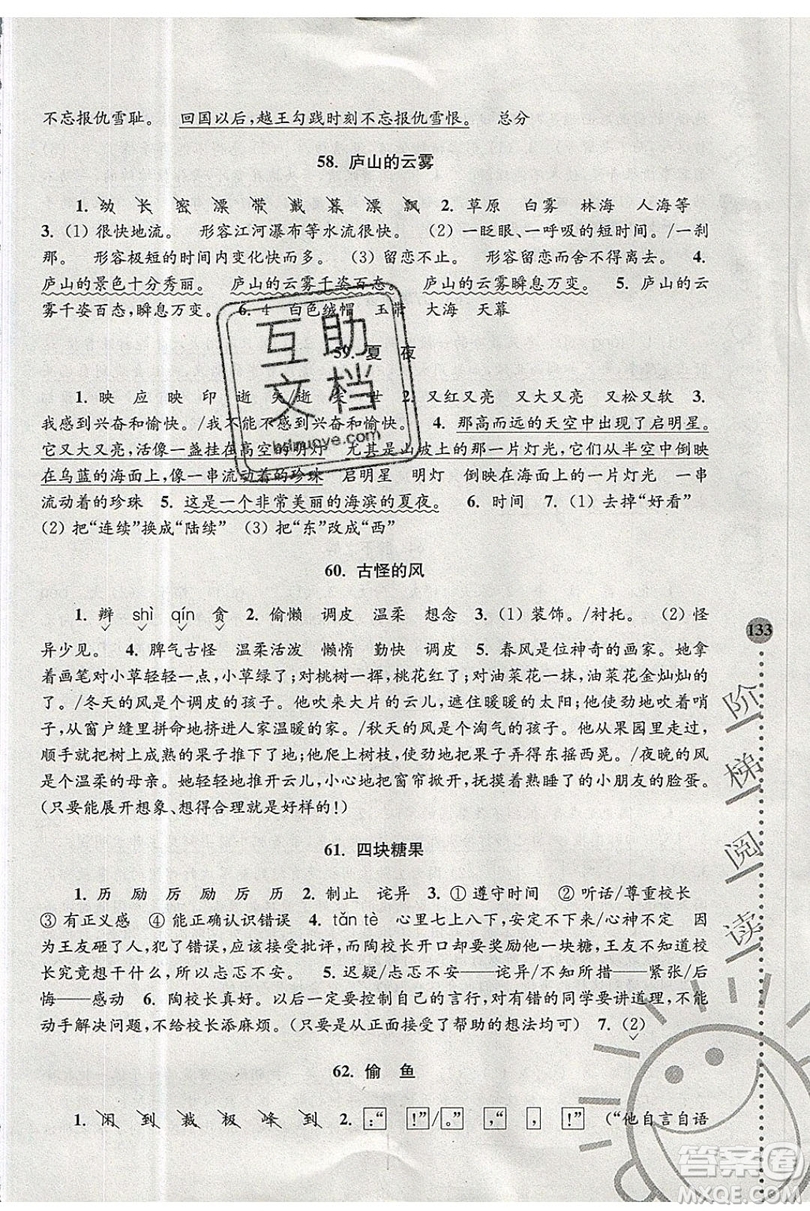 不忘报仇雪耻。 回国以后,越王勾践时刻不忘报仇雪恨。 总分
58. 庐山的云雾
1. 幼 长 密 漂 带 戴 暮 漂 飘 2. 草原 白雾 林海 人海等
3. (1) 很快地流。 形容江河瀑布等水流很快。 (2) 一眨眼、一呼吸的短时间。/一刹
那。 形容极短的时间内变化快而多。 (3) 留恋不止。 形容留恋而舍不得离开。 4.
庐山的景色十分秀丽。 庐山的云雾千姿百态。 庐山的云雾瞬息万变。 5. 庐山的云
雾千姿百态,瞬息万变。 6. 4 白色绒帽 玉带 大海 天幕
59. 夏 夜
1. 映 应 映 印 逝 矢/逝 世 2. 又红又亮 又大又亮 又松又软 3.
我感到兴奋和愉快。/我不能不感到兴奋和愉快。 4. 那高而远的天空中出现了启明星。
它又大又亮,活像一盏挂在高空的明灯 尤其是山坡上的那一片灯光,它们从半空中倒映
在乌蓝的海面上,像一串流动着的珍珠 启明星 明灯 倒映在海面上的一片灯光 一串
流动着的珍珠 5. 这是一个非常美丽的海滨的夏夜。 6. 时间 7. (1) 去掉“好看”
(2) 把“连续”换成“陆续” (3) 把“东”改成“西”
60. 古怪的风
1. 辩 shì qín 贪 2. 偷懒 调皮 温柔 想念 3. (1) 装饰。/衬托。 (2) 怪
异少见。 4. 脾气古怪 温柔活泼 懒惰 勤快 调皮 5. 春风是位神奇的画家。她拿
着画笔对小草轻轻一点,小草绿了;对桃花轻轻一点,桃花红了;对油菜花一点,油菜花黄
了。/冬天的风是个调皮的孩子。他吹来大片的云儿,遮住暖暖的太阳;他使劲地吹着哨
子,从窗户缝里拼命地挤进人家温暖的家。/秋天的风是个淘气的孩子。他从果园里来,
顺手就把树上成熟的果子推下了地;他爬上树枝,使劲地把果子弄得东摇西晃。/夜晚的风
是个温柔的母亲。她轻轻地推开云儿,小心地把窗帘掀开,抚摸着熟睡的小朋友的脸蛋。
(只要能展开想象、想得合理就是好样的!)
61. 四块糖果
1. 历 励 厉 励 厉 历 2. 制止 诧异 3. ① 遵守时间 ② 听话/尊重校长
③ 有正义感 ④ 能正确认识错误 4. tǎn tè 心里七上八下,安定不下来/心神不定 因
为王友砸了人,犯了错误,应该接受批评,而陶校长开口却要奖励他一块糖,王友不知道校
长究竟想干什么,所以忐忑不安。 5. 迟疑/忐忑不安——诧异/不知所措——紧张/后
悔——感动 6. 陶校长真好。以后一定要控制自己的言行,对有错的同学要讲道理,不能
动手解决问题,不给校长添麻烦。(只要是从正面接受了帮助的想法均可) 7. (2)
62. 偷 鱼
1. 闲 到 裁 极 峰 到 2. :“ !”/。” ,“ , !” (“他自言自语
133
阶
梯
阅
读
互助
文档
hdzuoye.com
答案圈
MXQE.COM